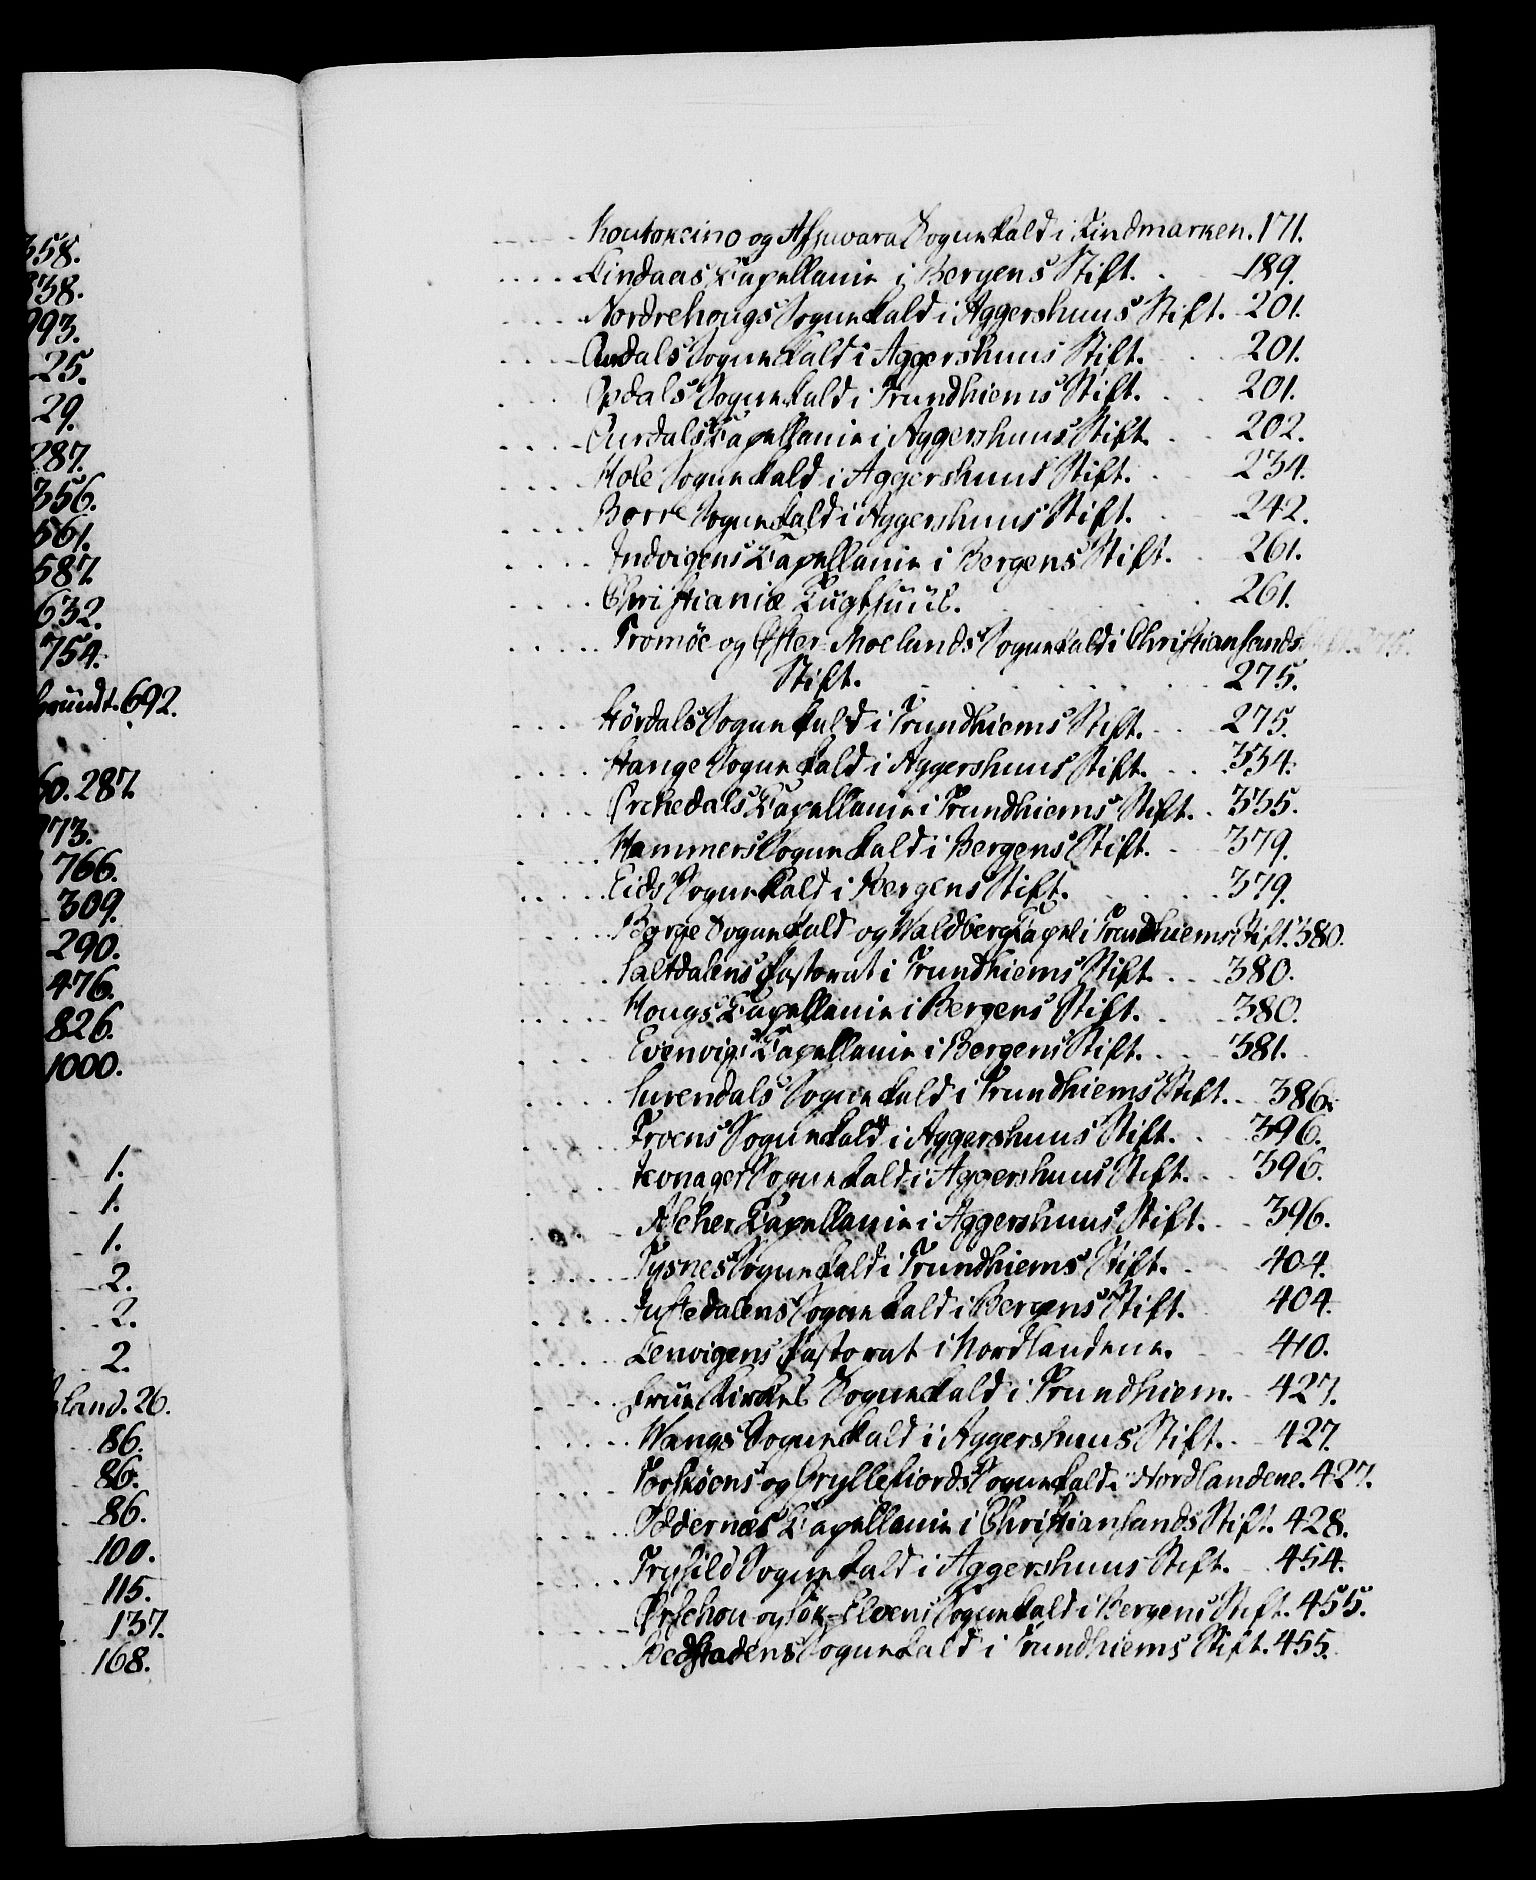 358.
838.
993.
25.
29.
287.
356.
561.
587.
632.
754.
grundt. 692.
60. 287.
773.
766.
309.
290.
476.
826.
1000.
1.
1.
1.
2.
2.
2.
land. 26.
86.
86.
86.
100.
115.
137.
168.
Koutokeino og Afjuvara Sogne Kald i Findmarken. 171.
Lindaas Capellanie i Bergens Stift. 189.
Nordrehougs Sogne Kald i Aggershuus Stift. 201.
Aurdals Sogne Kald i Aggershuus Stift. 201.
Opdals Sogne Kald i Trundhiems Stift. 201.
Aurdals Capellanie i Aggershuus Stift. 202.
Hole Sogne Kald i Aggershuus Stift. 234.
Borre Sogne Kald i Aggershuus Stift. 242.
Indvigens Capellanie i Bergens Stift. 261.
Christianiæ Tugthuus. 261.
Tromöe og Öster-Moelands Sogne Kald i Christiansands
Stift. 275.
Stördals Sogne Kald i Trundhiems Stift. 275.
Stange Sogne Kald i Aggershuus Stift. 334.
Orchedals Capellanie i Trundhiems Stift. 335.
Hammers Sogne Kald i Bergens Stift. 379.
Eids Sogne Kald i Bergens Stift. 379.
Borge Sogne Kald og Waldberg Capel i Trundhiems Stift. 380.
Saltdalens Pastorat i Trundhiems Stift. 380.
Hougs Capellanie i Bergens Stift. 380.
Evenvigs Capellanie i Bergens Stift. 381.
Surendals Sogne Kald i Trundhiems Stift. 386.
Froens Sogne Kald i Aggershuus Stift. 396.
Jevnager Sogne Kald i Aggershuus Stift. 396.
Asker Capellanie i Aggershuus Stift. 396.
Tysnes Sogne Kald i Trundhiems Stift. 404.
Justedalens Sogne Kald i Bergens Stift. 404.
Lenvigens Pastorat i Nordlandene. 410.
Frue Kirkes Sogne Kald i Trundhiem. 427.
Wangs Sogne Kald i Aggershuus Stift. 427.
Torskens og Gryllefiords Sogne Kald i Nordlandene. 427.
Oddernæs Capellanie i Christiansands Stift. 428.
Trysild Sogne Kald i Aggershuus Stift. 454.
Örschou og Sök-Elvens Sogne Kald i Bergens Stift. 455.
Bedstadens Sogne Kald i Trundhiems Stift. 455.